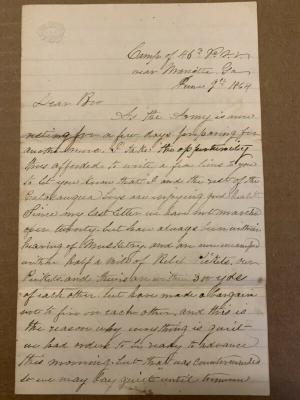 Camp of 46th Pa. V. V.
near Marietta Ga
June 9th 1864
Dear Bro
As the Army is now
resting for a few days preparing for
another move I take the opportunity
thus afforded to write a few lines to you
to let you know that I and the rest of the
boys are enjoying good health
Since my last letter we have not marched
over twenty but have always been within
hearing of Musketry and are now encamped
within half a Mile of Rebel Pickets, our
Pickets and theirs are within 30 yds
of each other but have made a bargain
not to fire on each other, and this is
the reason why everything is quiet
we had orders to be ready to advance
this morning but that was countermanded
so we may lay quiet until tomorrow